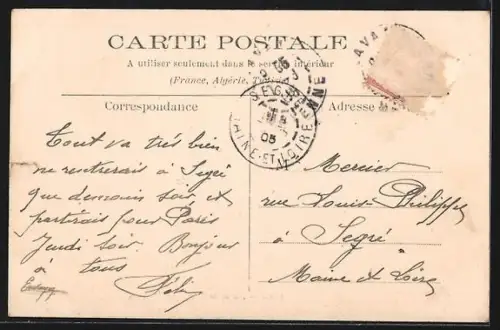 CARTE POSTALE
A utiliser seulement dans le service intérieur
(France, Algérie, Tunisie)
Correspondance
Adresse
Tout va très bien
ne rentrerais à Segré
que demain soir, et
partirais pour Paris
Jeudi soir. Bonjour
à tous
Mercier
rue Louis-Philippe
à Segré
Maine & Loire
SEGRÉ
05
MAINE-ET-LOIRE